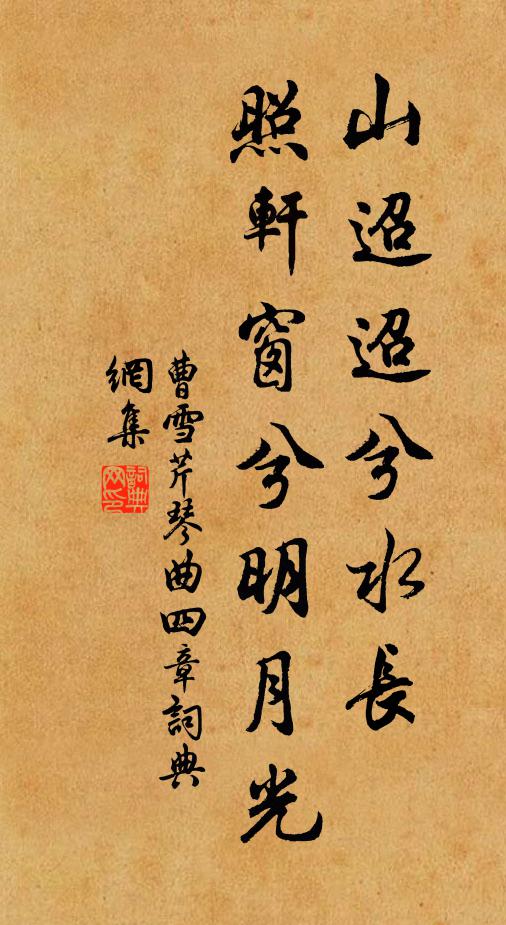 山迢迢兮水長
照軒窗兮明月光
曹雪芹琴曲四章詞典
網集
詞典
网印